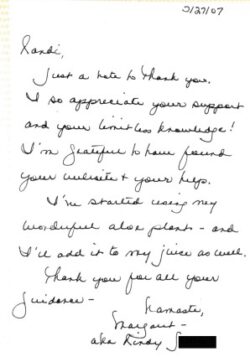 3/27/07
Randi,
Just a note to thank you.
I so appreciate your support
and your limitless knowledge!
I'm grateful to have found
your website & your help.
I'm started using my
wonderful aloe plant - and
I'll add it to my juice as well.
Thank you for all your
guidance -
Namaste,
Margaret -
aka Rindy S